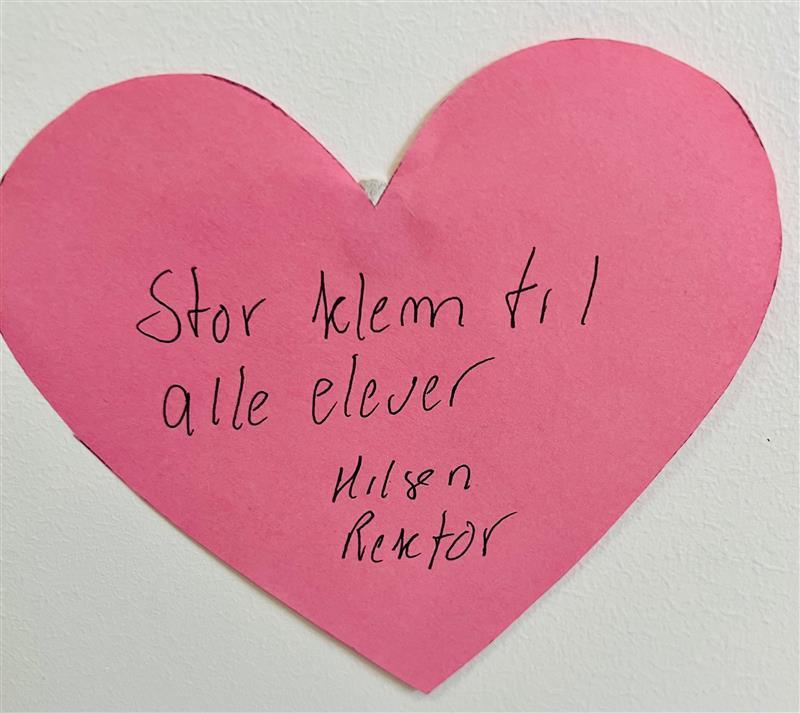 Stor klem til
alle elever
Hilsen
Rektor